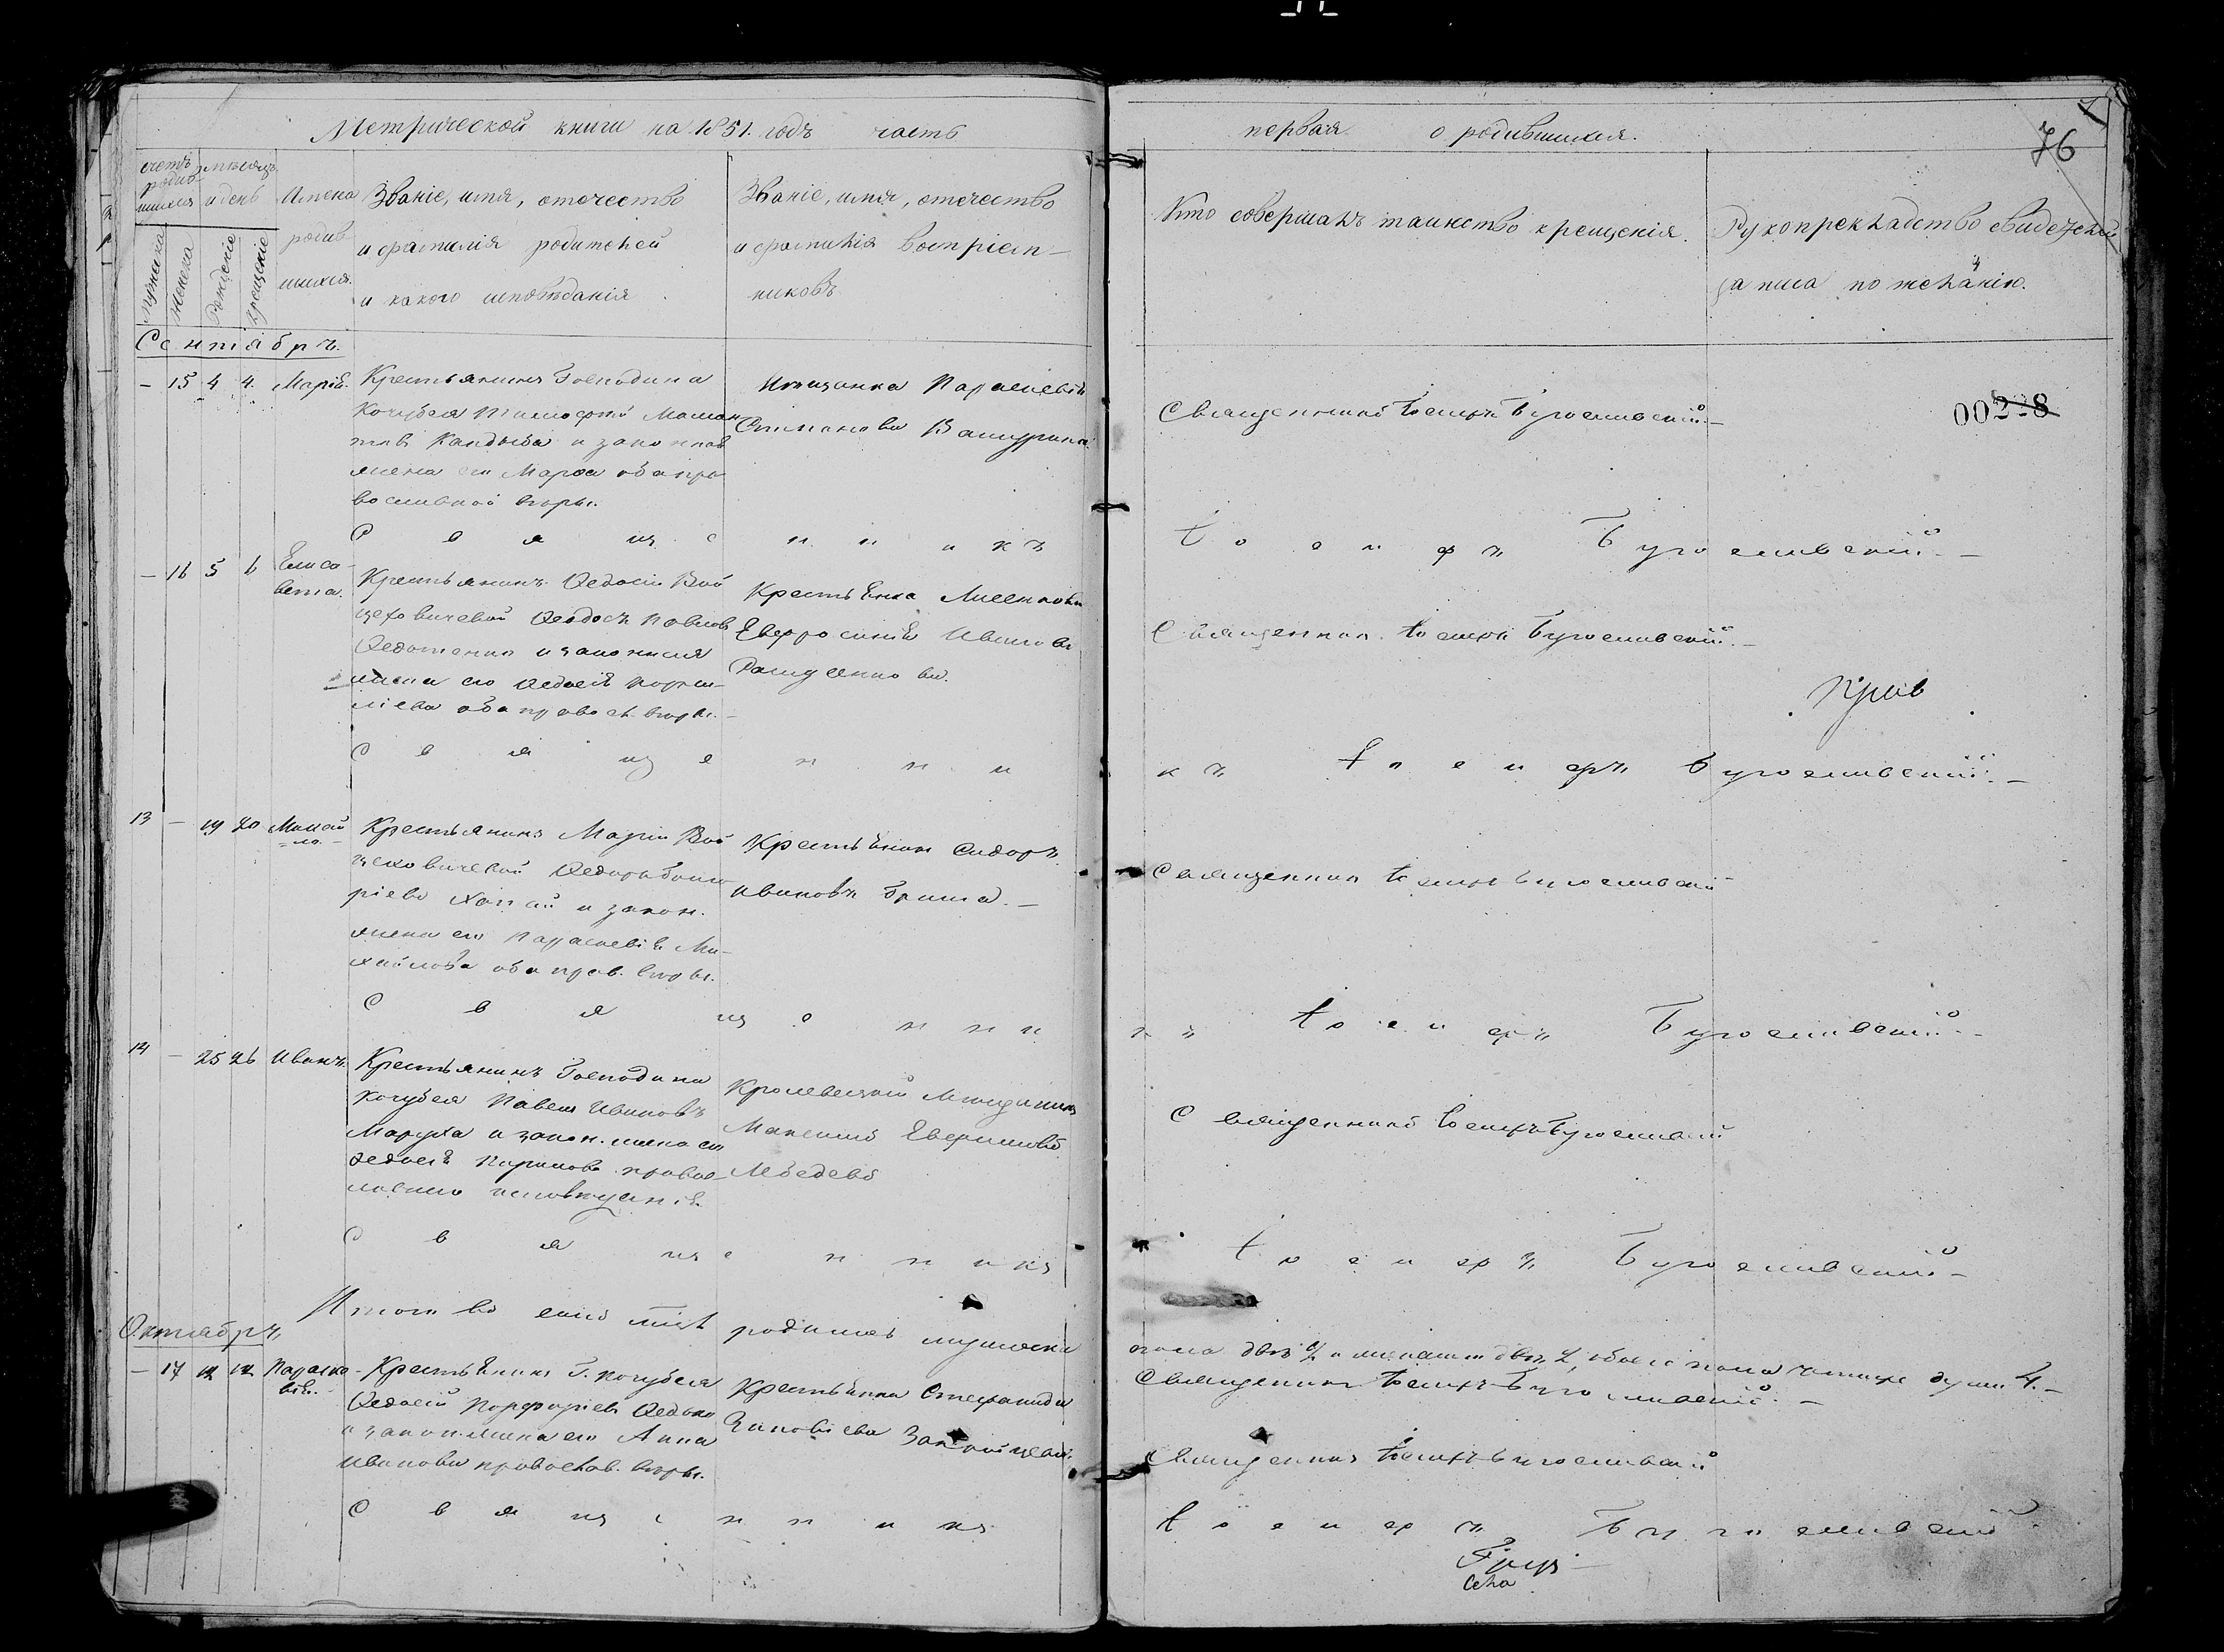 Метрической книги на 1851. годъ часть
первая о родившихся.
76
счетъ родив-шихся
мѣсяцъ и день
Имена родив шихся.
Званіе, имя, отечество
и фамилія родителей
и какого исповѣданія
Званіе, имя, отечество
и фамилія воспріем-
никовъ
Кто совершалъ таинство крещенія.
Рукоприкладство свидетелей
записа по желанію.
мужеска
женска
рожденіе
крещеніе
Сентябръ.
– 15 4 4. Марія.
Крестьянинъ Господина
Кочубея Тимофей
Кандыба и законная
жена его Марфа оба пра
вославной вѣры.
Параскевія
Степанова
Священникъ Іосифъ Бугославскій. –
00228
Священникъ
Іосифъ Бугославскій. –
– 16 5 6 Елиса-
вета.
Крестьянинъ Федосіи Вой
цеховичевой Феодосъ
и законная
жена его Федосія
оба правосл. вѣры. –
Крестьянка
Евфросинія Иванова
Священник. Іосифъ Бугославскій. –
Свящeнни
къ Іосифъ Бугославскій. –
13 – 19 20 Михаи
=ло.
Крестьянинъ Маріи Вой
цеховичевой Федоръ
и закон.
жена его Параскевія Ми-
хайлова оба прав. вѣры.
Крестьянин Сидоръ
Ивановъ –
Священник Іосифъ Бугославскій
Священни
къ Іосифъ Бугославскій. –
14 – 25 26 Иванъ.
Крестьянинъ Господина
Кочубея Павелъ Ивановъ
Маруха и закон. жена его
Федосія правос-
лавнаго исповѣданія.
Кролевецкій Мещанинъ
Максимъ
Лебедевъ
Священникъ Іосифъ Бугославскій
Священникъ
Іосифъ Бугославскій –
Итого въ семъ родилось мужеска
пола два 2, и женска двѣ 2, обоего пола четыре души 4. –
Священник Іосифъ Бугославскій. –
Октябръ
– 17 12 12 Параске
вія.
Крестьянинъ Г. Кочубея
Федосій Порфиріевъ
и закон. жена его Анна
Иванова православ. вѣры.
Крестьянка Стефанида
Зиновіева
Священникъ Іосифъ Бугославскій
Священникъ
Іосифъ Бугославскій
Села